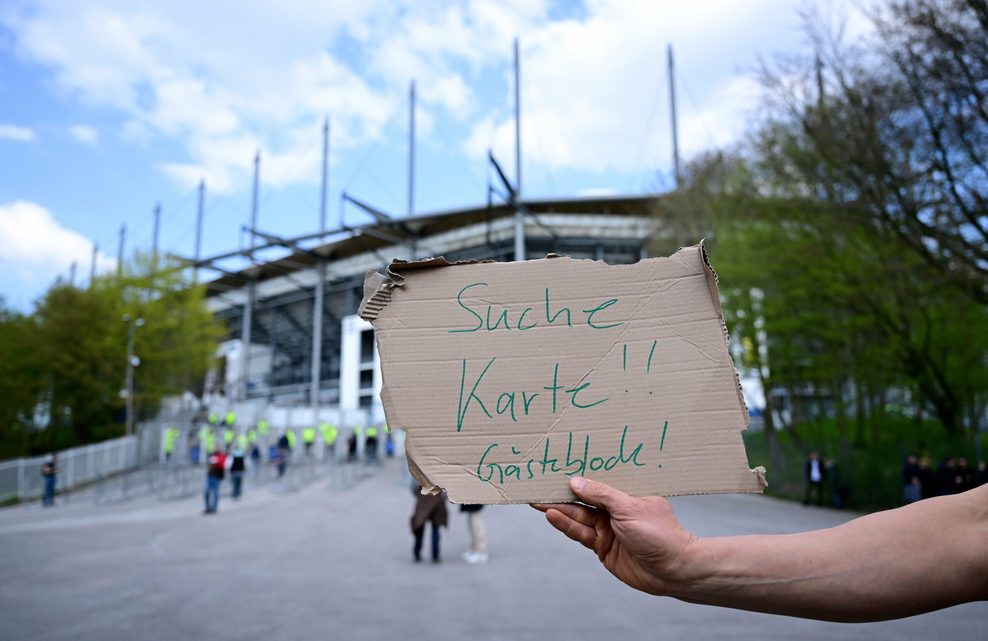 Suche
Karte!!
Gästeblock!